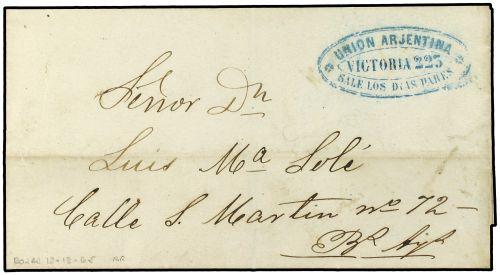 UNION ARJENTINA
VICTORIA 223
SALE LOS DIAS PARES
Señor Dn
Luis Ma Solé
Calle S. Martin no 72
Bs Ays